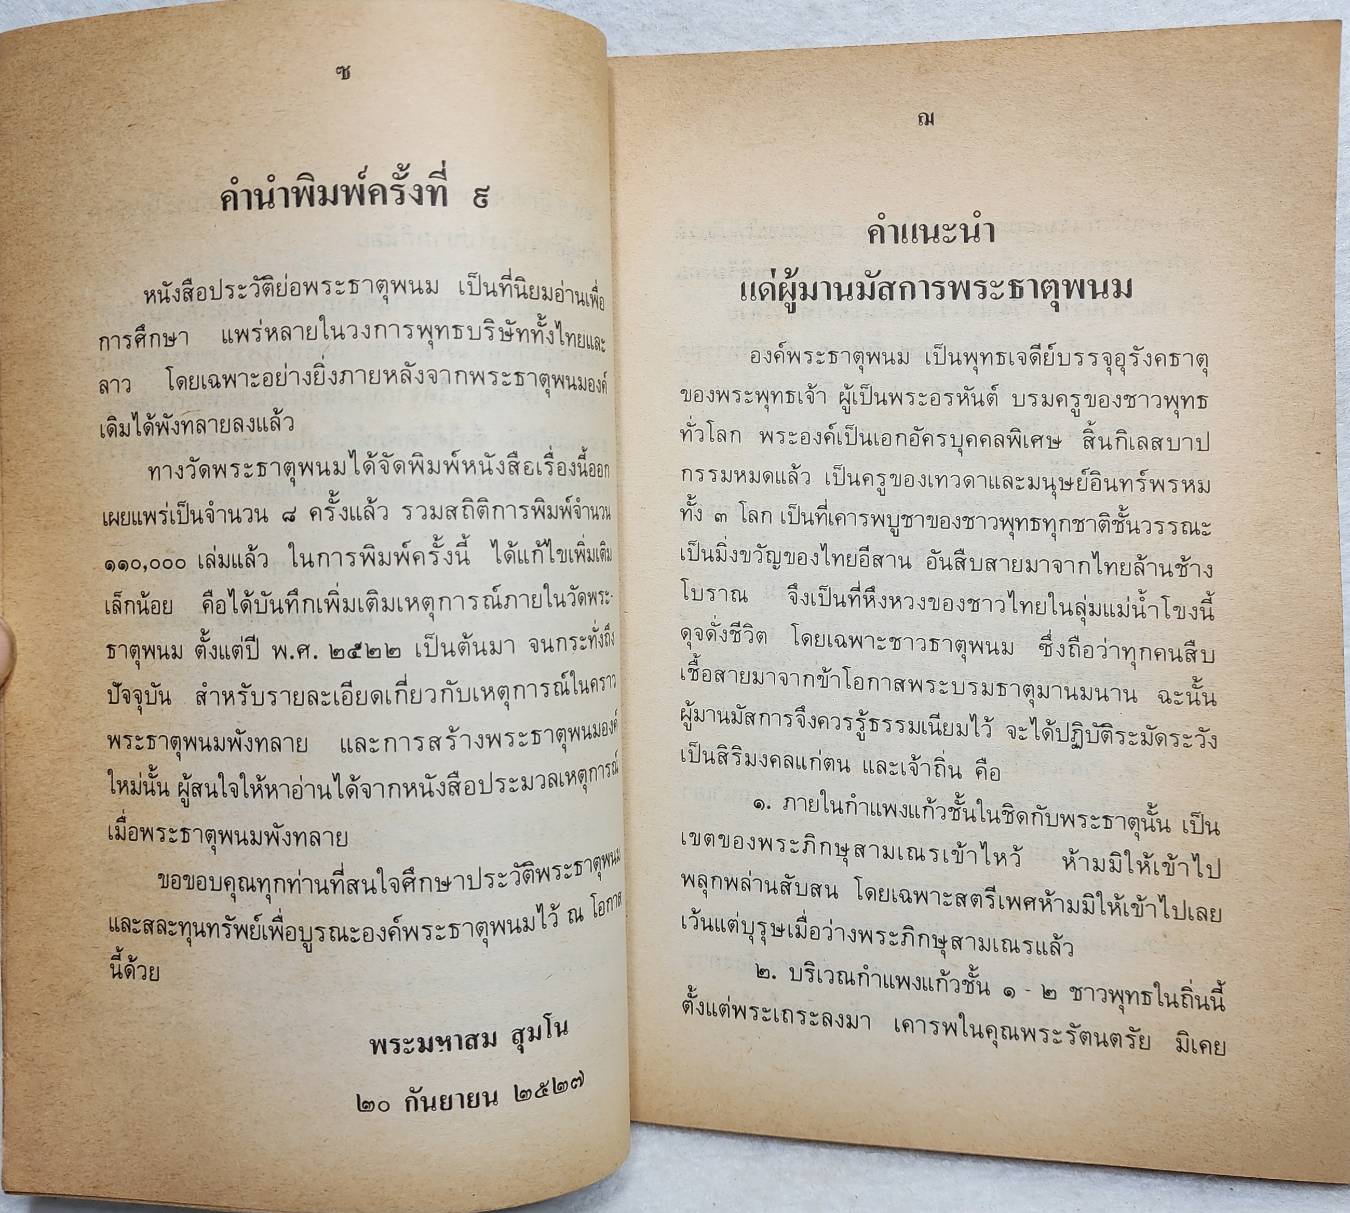 ซ
คำนำพิมพ์ครั้งที่ ๙
หนังสือประวัติย่อพระธาตุพนม เป็นที่นิยมอ่านเพื่อ
การศึกษา แพร่หลายในวงการพุทธบริษัททั้งไทยและ
ลาว โดยเฉพาะอย่างยิ่งภายหลังจากพระธาตุพนมองค์
เดิมได้พังทลายลงแล้ว
ทางวัดพระธาตุพนมได้จัดพิมพ์หนังสือเรื่องนี้ออก
เผยแพร่เป็นจำนวน ๘ ครั้งแล้ว รวมสถิติการพิมพ์จำนวน
๑๑๐,๐๐๐ เล่มแล้ว ในการพิมพ์ครั้งนี้ ได้แก้ไขเพิ่มเติม
เล็กน้อย คือได้บันทึกเพิ่มเติมเหตุการณ์ภายในวัดพระ-
ธาตุพนม ตั้งแต่ปี พ.ศ. ๒๕๒๒ เป็นต้นมา จนกระทั่งถึง
ปัจจุบัน สำหรับรายละเอียดเกี่ยวกับเหตุการณ์ในคราว
พระธาตุพนมพังทลาย และการสร้างพระธาตุพนมองค์
ใหม่นั้น ผู้สนใจให้หาอ่านได้จากหนังสือประมวลเหตุการณ์
เมื่อพระธาตุพนมพังทลาย
ขอขอบคุณทุกท่านที่สนใจศึกษาประวัติพระธาตุพนม
และสละทุนทรัพย์เพื่อบูรณะองค์พระธาตุพนมไว้ ณ โอกาส
นี้ด้วย
พระมหาสม สุมโน
๒๐ กันยายน ๒๕๒๗
ฌ
คำแนะนำ
แด่ผู้มานมัสการพระธาตุพนม
องค์พระธาตุพนม เป็นพุทธเจดีย์บรรจุอุรังคธาตุ
ของพระพุทธเจ้า ผู้เป็นพระอรหันต์ บรมครูของชาวพุทธ
ทั่วโลก พระองค์เป็นเอกอัครบุคคลพิเศษ สิ้นกิเลสบาป
กรรมหมดแล้ว เป็นครูของเทวดาและมนุษย์อินทร์พรหม
ทั้ง ๓ โลก เป็นที่เคารพบูชาของชาวพุทธทุกชาติชั้นวรรณะ
เป็นมิ่งขวัญของไทยอีสาน อันสืบสายมาจากไทยล้านช้าง
โบราณ จึงเป็นที่หึงหวงของชาวไทยในลุ่มแม่น้ำโขงนี้
ดุจดั่งชีวิต โดยเฉพาะชาวธาตุพนม ซึ่งถือว่าทุกคนสืบ
เชื้อสายมาจากข้าโอกาสพระบรมธาตุมานมนาน ฉะนั้น
ผู้มานมัสการจึงควรรู้ธรรมเนียมไว้ จะได้ปฏิบัติระมัดระวัง
เป็นสิริมงคลแก่ตน และเจ้าถิ่น คือ
๑. ภายในกำแพงแก้วชั้นในชิดกับพระธาตุนั้น เป็น
เขตของพระภิกษุสามเณรเข้าไหว้ ห้ามมิให้เข้าไป
พลุกพล่านสับสน โดยเฉพาะสตรีเพศห้ามมิให้เข้าไปเลย
เว้นแต่บุรุษเมื่อว่างพระภิกษุสามเณรแล้ว
๒. บริเวณกำแพงแก้วชั้น ๑ - ๒ ชาวพุทธในถิ่นนี้
ตั้งแต่พระเถระลงมา เคารพในคุณพระรัตนตรัย มิเคย